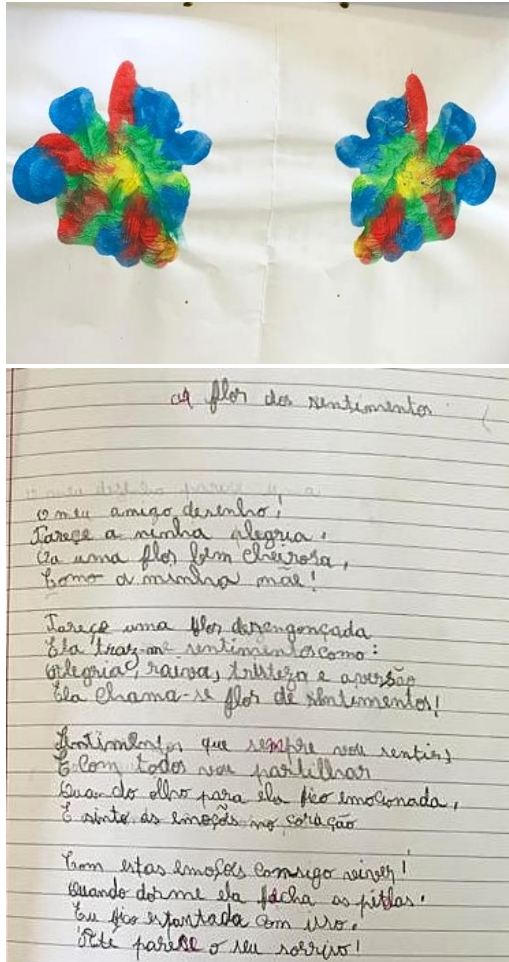 A flor dos sentimentos
O meu amigo desenho,
Pareçe a minha alegria.
Da uma flor bem cheirosa,
Como a minha mãe!
Pareçe uma flor dezengonçada
Ela traz-me sentimentos como:
Alegria, raiva, tristeza e aversão
Ela chama-se flor de sentimentos!
Sentimentos que sempre vou sentir,
E com todos vou partilhar
Quando olho para ela fico emocionada,
E sinto as emoções no coração
Com estas emoções consigo viver!
Quando dorme ela fecha as pétlas.
Eu fico espantada com isso.
Até parese o seu sorriso!